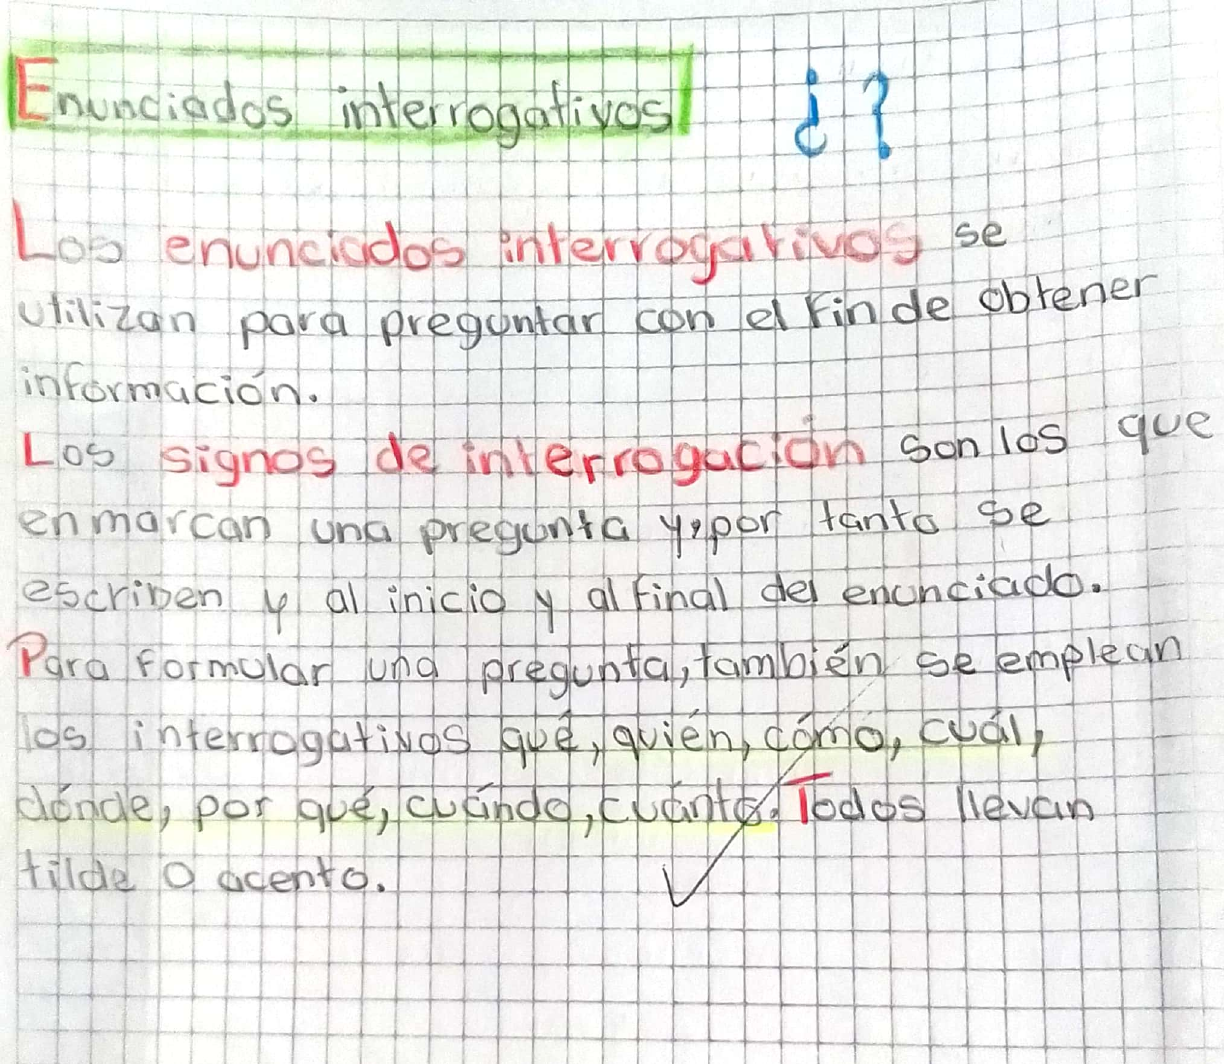 Enunciados interrogativos ¿ ?
Los enunciados interrogativos se
utilizan para preguntar con el fin de obtener
información.
Los signos de interrogación son los que
enmarcan una pregunta y, por tanto se
escriben y al inicio y al final del enunciado.
Para formular una pregunta, también se emplean
los interrogativos qué, quién, cómo, cuál,
dónde, por qué, cuándo, cuánto. Todos llevan
tilde o acento.